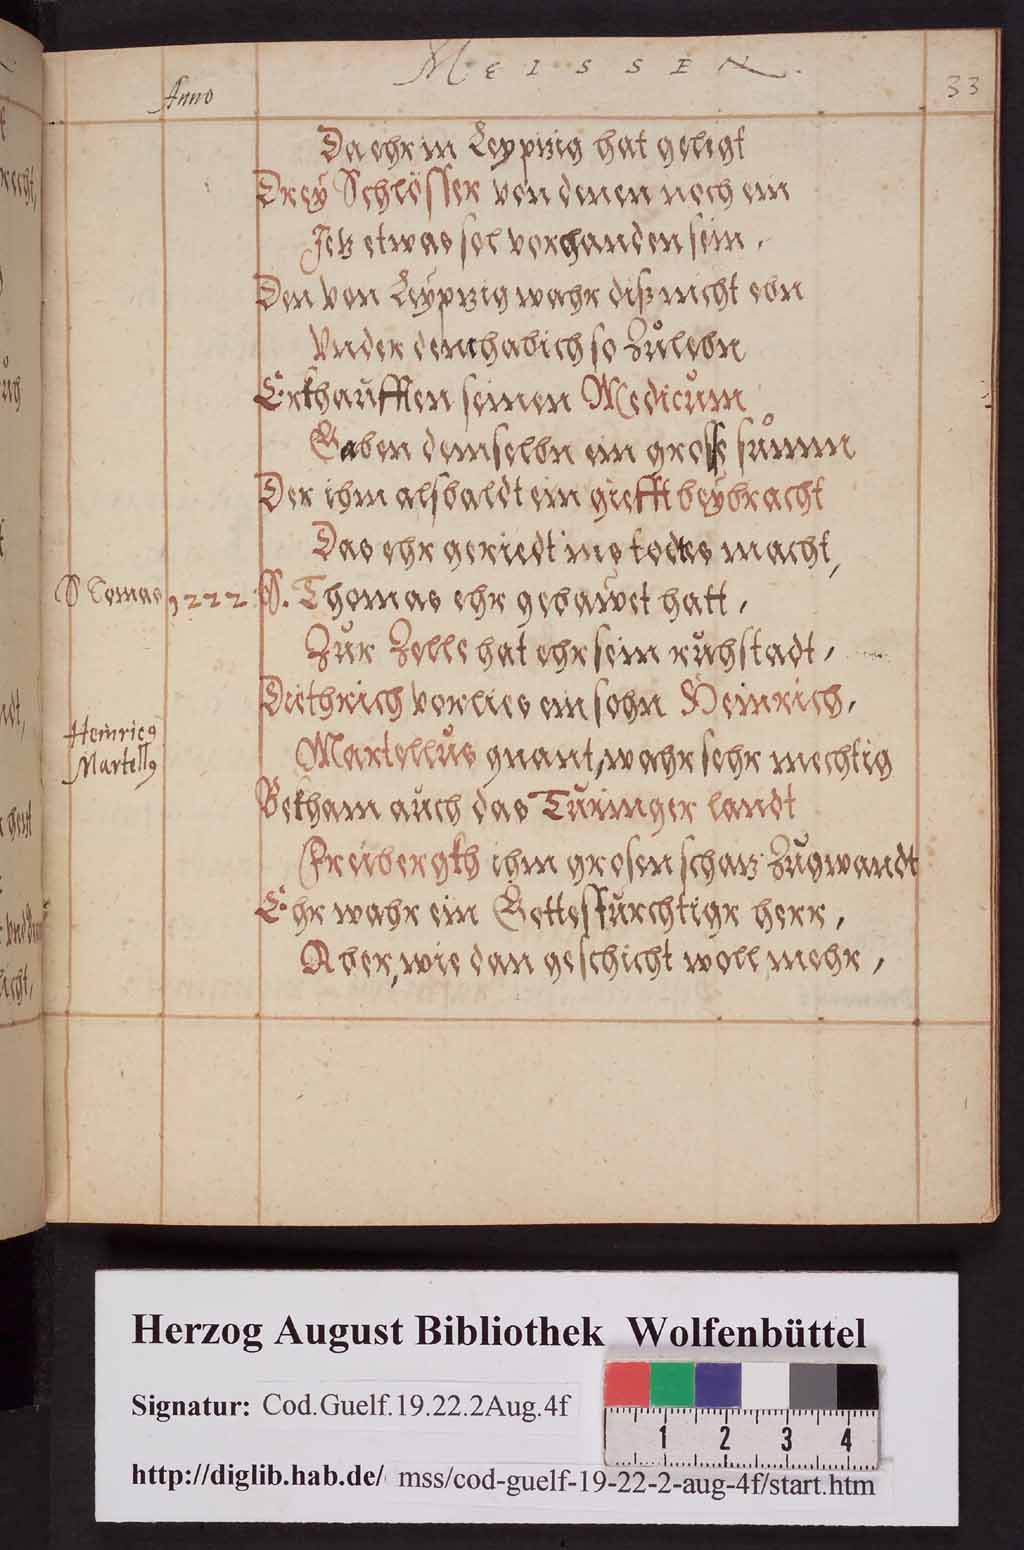 MEISSEN.
Anno
33
Da ehr in Leyptzig hat gelegt
Drey Schlösser von denen noch ein
Jetz etwas sol vorhanden sein,
Den von Leyptzig wahr diß nicht ebn
Vnder dem habich so Zů lebn
Erkhaůfften seinen Medicům
Gaben demselbn ein grosse sůmm
Der ihm alsbaldt ein giefft beybracht
Das ehr geriedt ins todtes macht,
S Tomas 1222 S. Thomas ehr gebawet hatt,
Zůr Zelle hat ehr sein růhstadt,
Diethrich vorlies ein sohn Heinrich,
Heinricꝰ
Martellꝰ
Martellůs gnant, wahr sehr mechtig
Bekham aůch das Tůringer landt
Freibergkh ihm grosen schatz Zůgwandt
Ehr wahr ein Gottesfůrchtigr herr,
Aber, wie dan geschicht woll mehr,
Herzog August Bibliothek Wolfenbüttel
Signatur: Cod.Guelf.19.22.2Aug.4f
http://diglib.hab.de/ mss/cod-guelf-19-22-2-aug-4f/start.htm
1 2 3 4